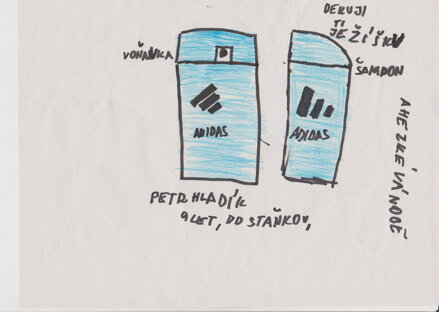 DEKUJI
TI
JEŽÍŠKU
VOŇAVKA
ŠAMPON
ADIDAS
ADIDAS
A HEZKÉ VÁNOCE
PETR HLADÍK
9 LET, DD STAŇKOV,